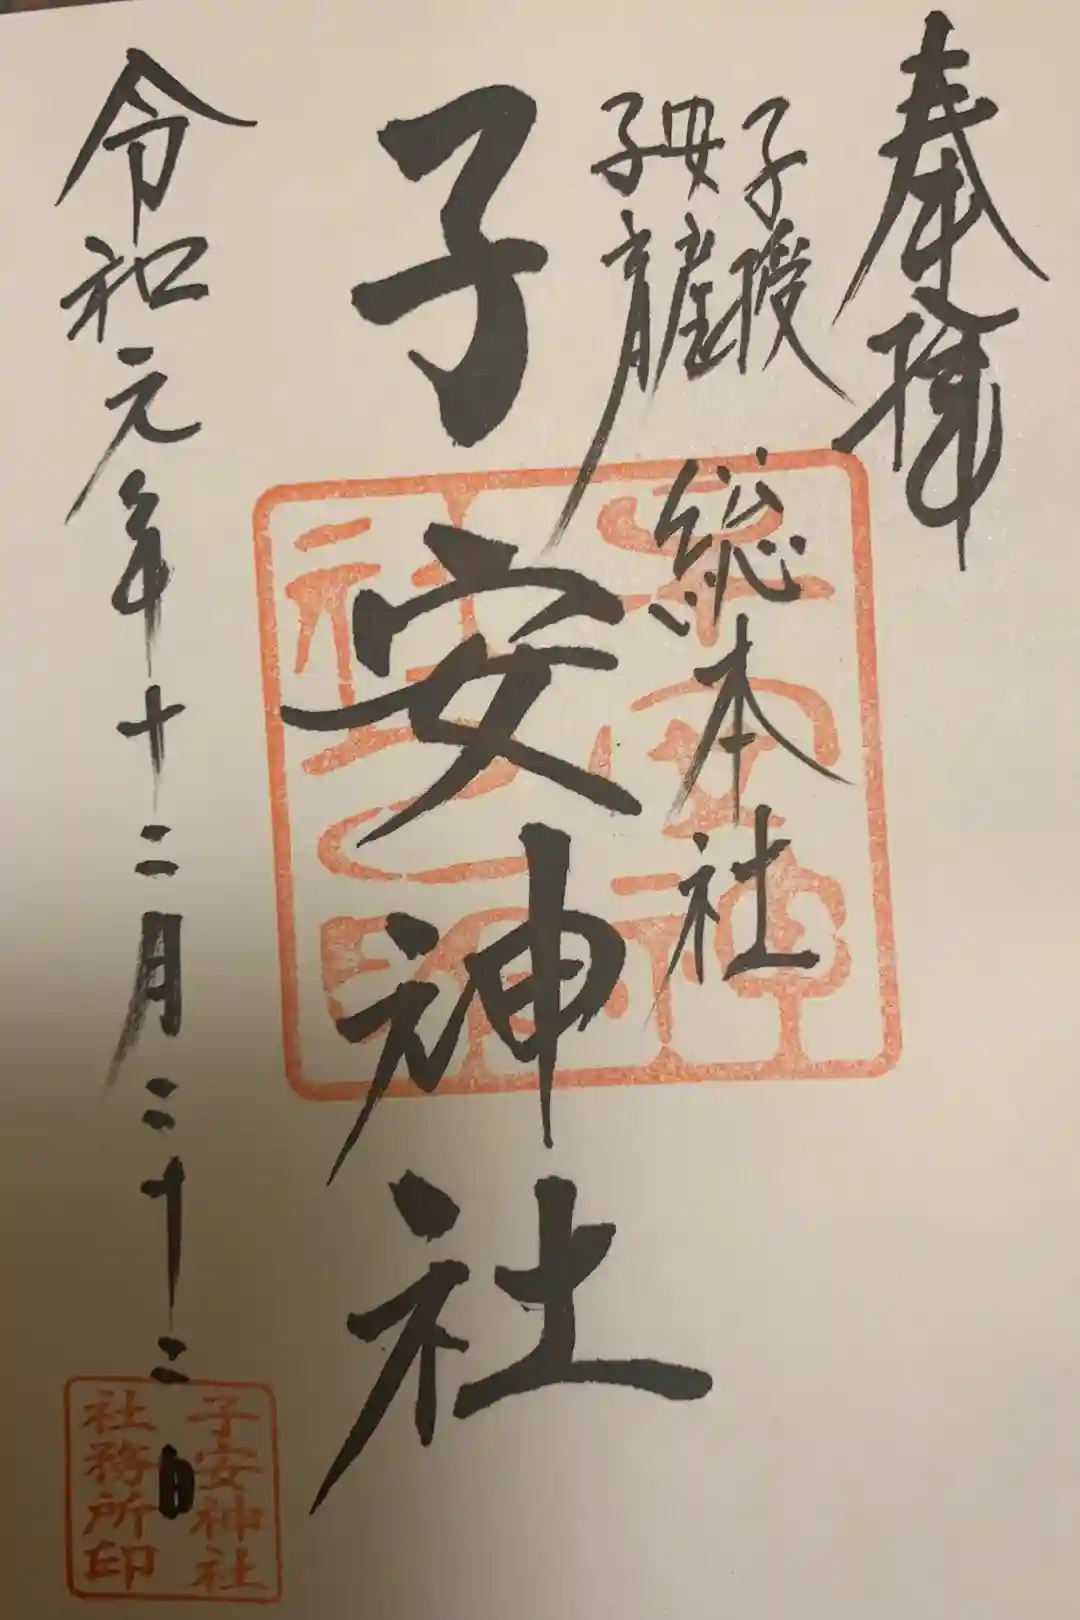 奉拝
子授
安産
子育
総本社
子安神社
令和元年十二月二十二日
子安神社
社務所印
子安神
社之印